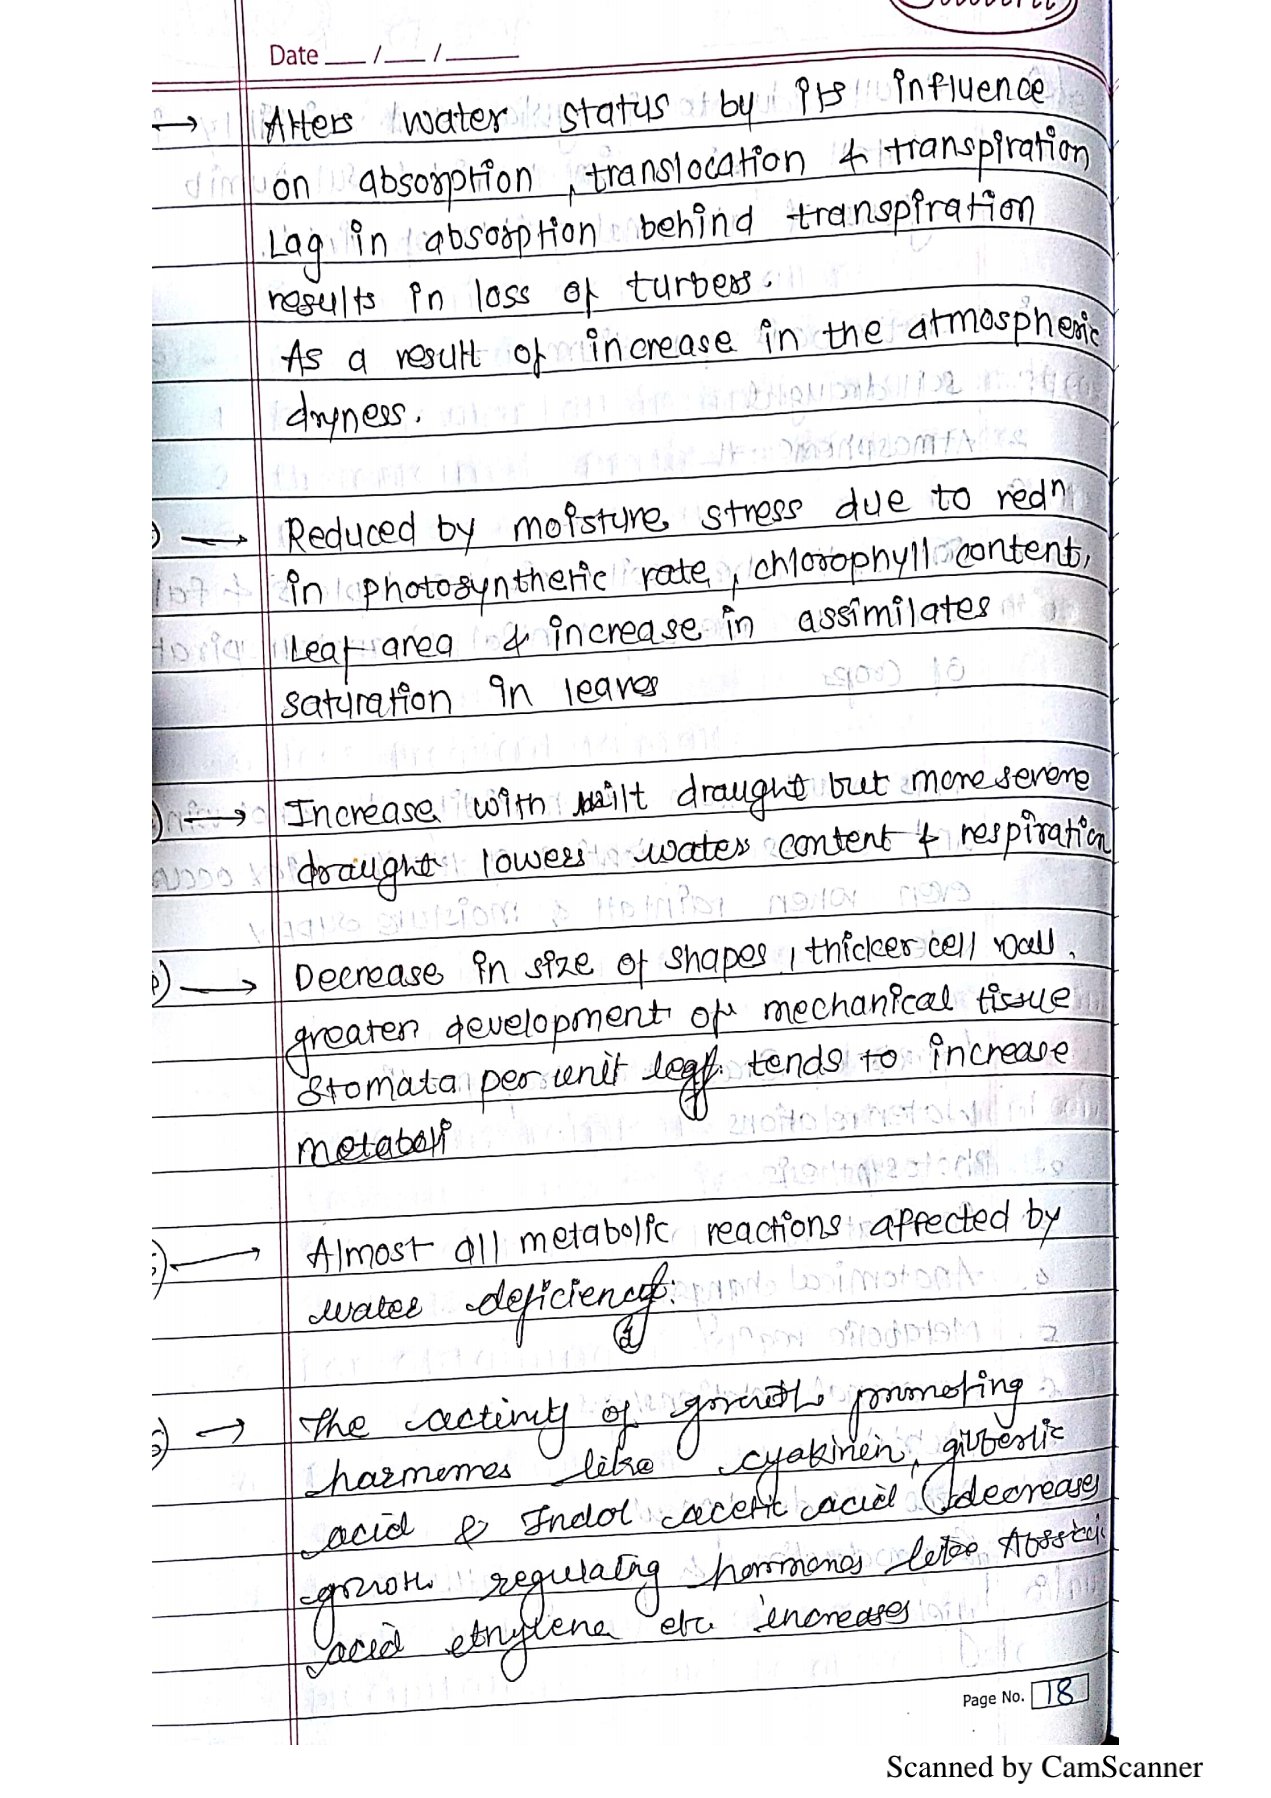 Date ___/___/_____
→ Alters water status by its influence
on absorption, translocation & transpiration
Lag in absorption behind transpiration
results in loss of turbers.
As a result of increase in the atmospheric
dryness.
) → Reduced by moisture stress due to redn
in photosynthetic rate, chlorophyll content,
Leaf area & increase in assimilates
saturation in leaves
) → Increase with milt draught but more severe
draught lowers water content & respiration
) → Decrease in size of shapes, thicker cell wall.
greater development of mechanical tissue
stomata per unit leaf tends to increase
metaboli
) → Almost all metabolic reactions affected by
water deficiency.
) → The activity of growth promoting
harmomes like cyakinin, gibberlic
acid & Indol acetic acid decreases
growth regulating hormones like Abssici
acid ethylene etc increases
Page No. 18
Scanned by CamScanner